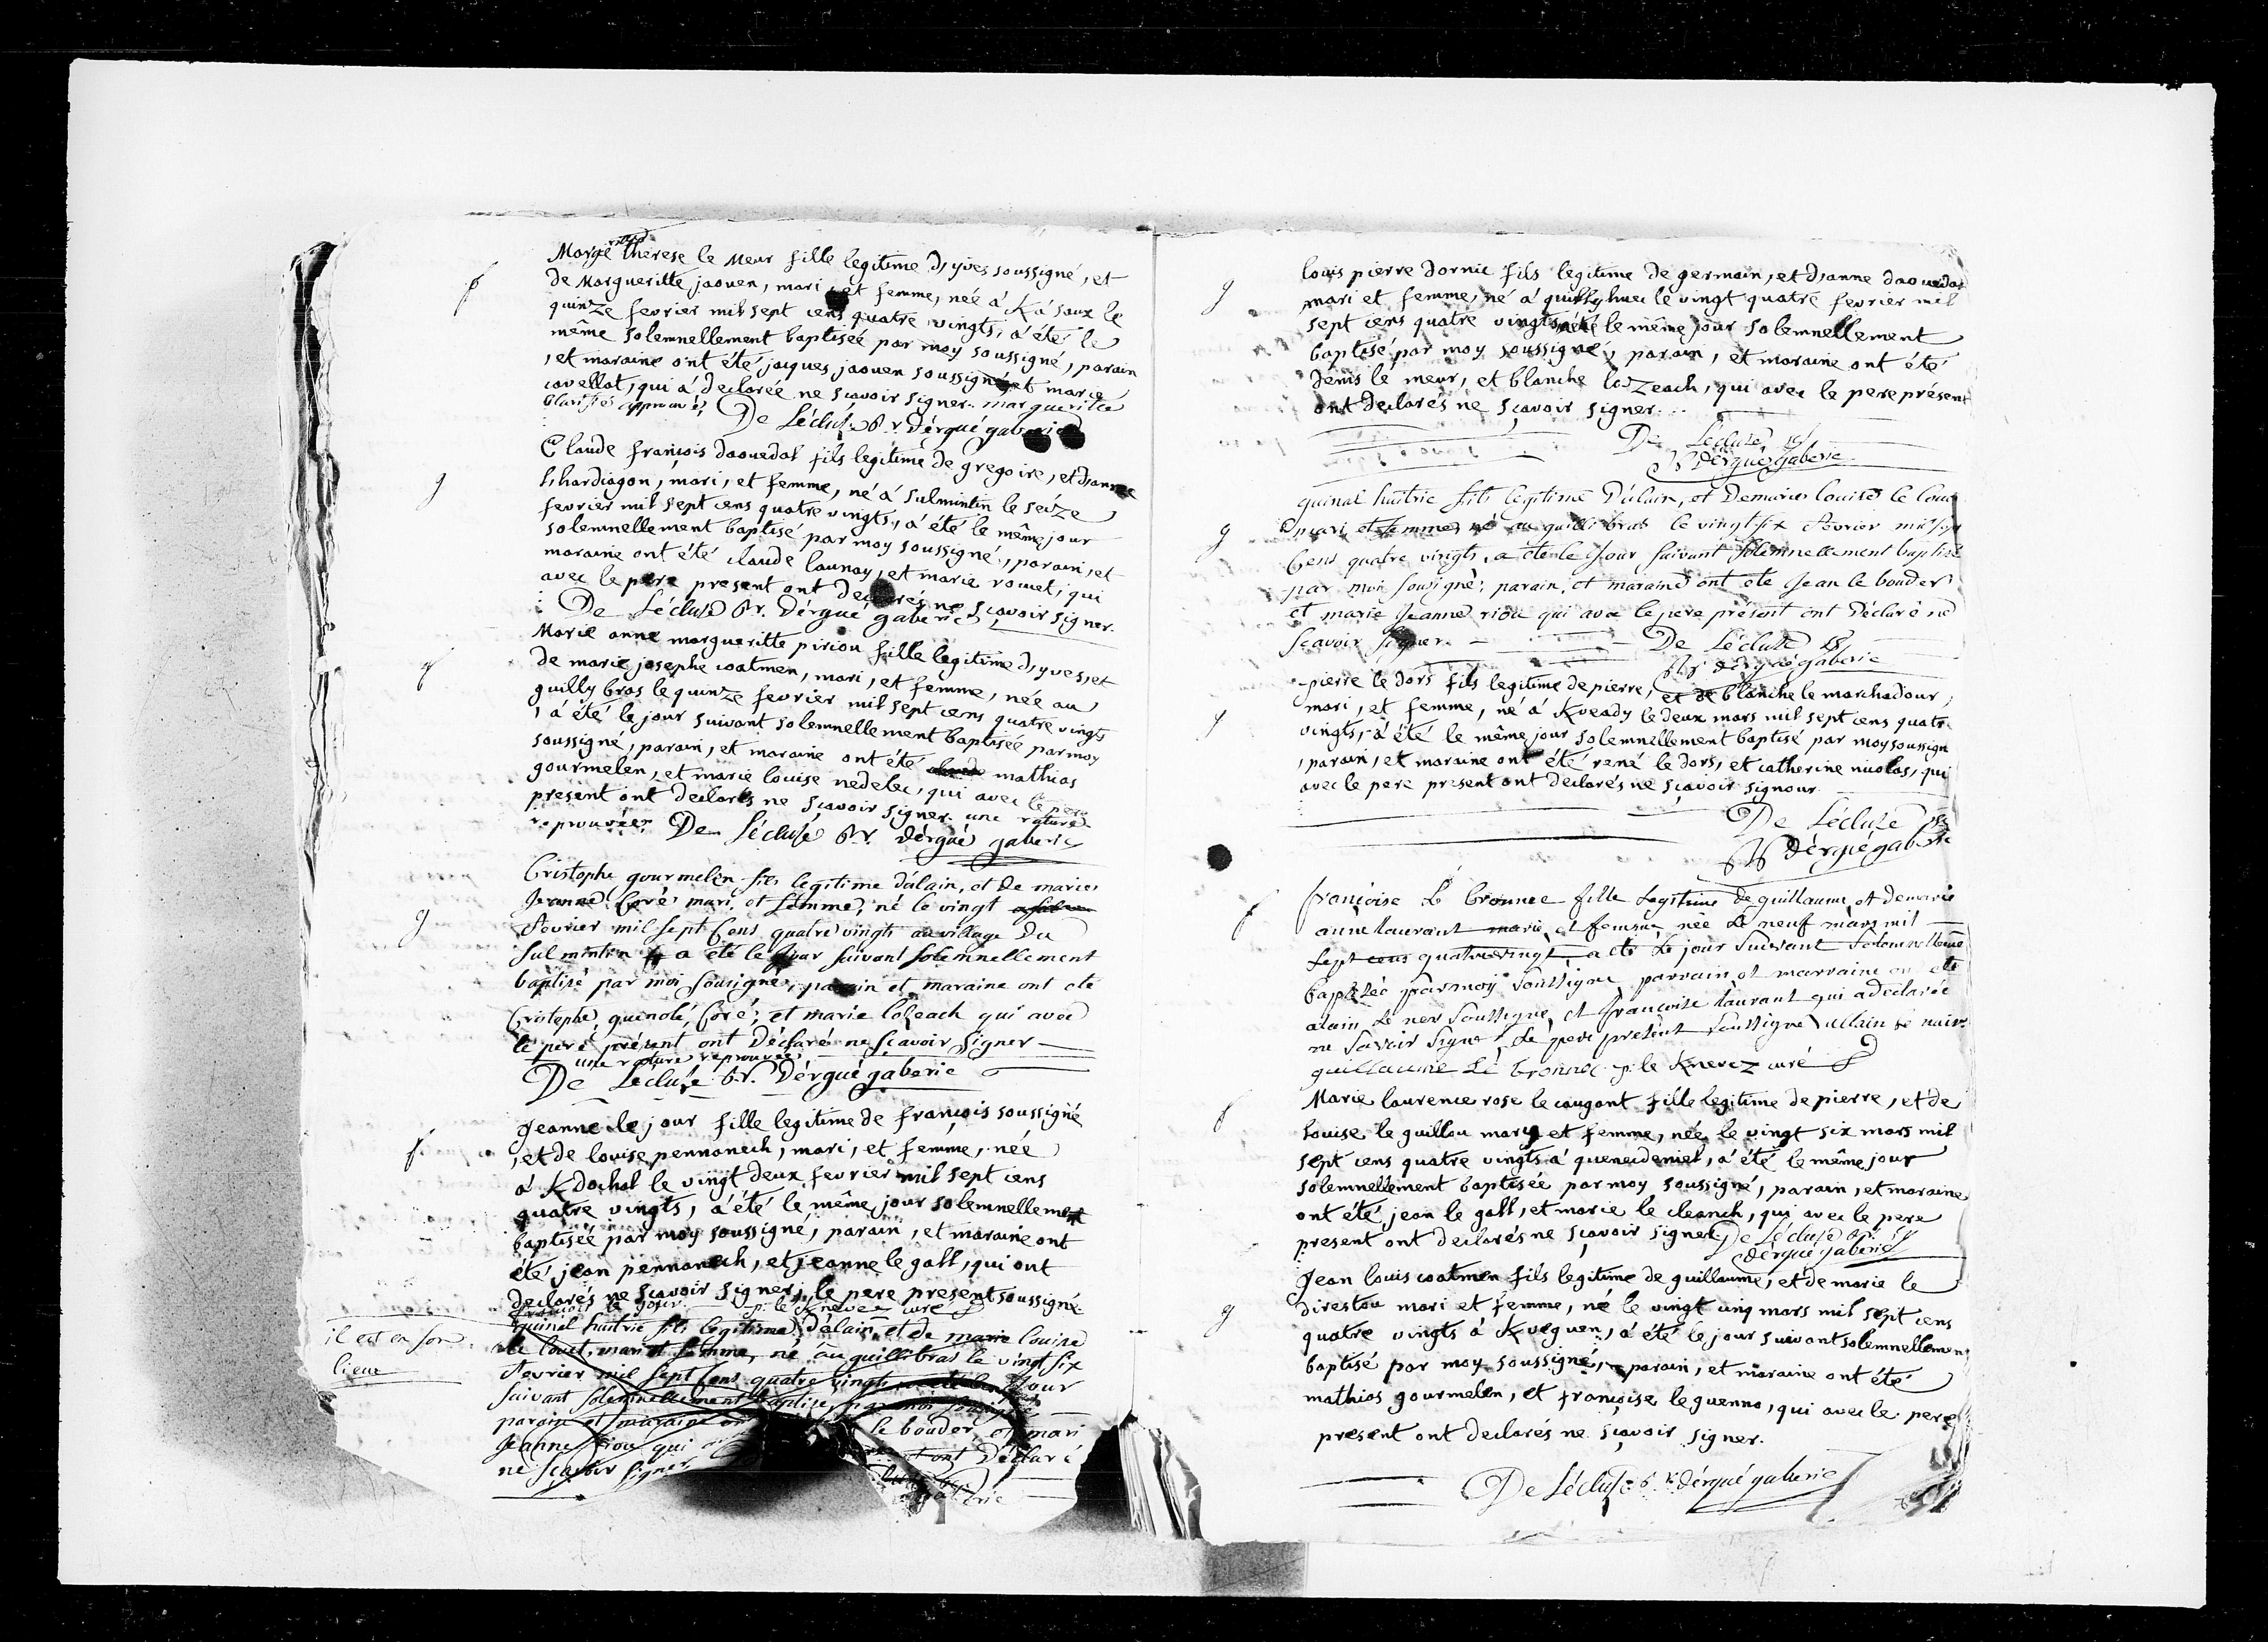 f
Margte therese le Meur fille legitime d'yves soussigné, et
de Margueritte jaouen, mari, et femme, née á K
quinze fevrier mil sept cens quatre vingts, á été le
même solemnellement baptiséé par moy soussigné, parain
, et maraine ont été jacques jaouen soussigné et marie
cavellat, qui á declarée ne sçavoir signer. margueritte
approuvés De Lécluse Ptr. dérgué gaberic
g
Claude françois daouedal fils legitime de gregoire, et d'anne
hardiagon, mari, et femme, né á sulmintin le seize
fevrier mil sept cens quatre vingts, á été le même jour
solemnellement baptisé par moy soussigné, parain, et
maraine ont été claude launay, et marie rouet, qui
avec le pere present ont declarés ne sçavoir signer.
De Lécluse Ptr. dérgué gaberic
f
Marie anne margueritte piriou fille legitime d'yves, et
de marie josephe coatmen, mari, et femme, née au
guilly bras le quinze fevrier mil sept cens quatre vingts
, á été le jour suivant solemnellement baptisée par moy
soussigné, parain, et maraine ont été mathias
gourmelen, et marie louise nedelec, qui avec le pere
present ont declarés ne sçavoir signer. une rature
reprouvée. De Lécluse Ptr. dérgué gaberic
g
Cristophe gourmelen fils legitime d'alain, et de marie
Jeanne Coré mari, et femme, né le vingt
fevrier mil sept Cens quatre vingts au village Du
Sulmintin a été le Jour suivant solemnellement
baptisé par moi sousigné, parain et maraine ont ete
Cristophe guenolé Coré, et marie lozeach qui avec
le pere présent ont Déclaré ne sçavoir signer
une rature reprouvée
De Lécluse Ptr. Dérgué gaberic
f
Jeanne le jour fille legitime de françois soussigné
, et de louise pennanech, mari, et femme, née
á Kdochal le vingt deux fevrier mil sept cens
quatre vingts, á été le même jour solemnellement
baptisée par moy soussigné, parain, et maraine ont
été jean pennanech, et jeanne le gall, qui ont
declarés ne sçavoir signer, le pere present soussigné
françois le jour. p: le Knevez curé
il est en son
lieue
guinal huitric fils legitime d'alain et de marie louise
le louet, mari et femme, né au quillibras le vingt six
fevrier mil sept Cens quatre vingts Jour
suivant solemnellement baptise, par moi sousigné
parain et maraine ont le bouder, et mari
Jeanne riou qui ont Déclaré
ne sçavoir signer
g
louis pierre dornic fils legitime de germain, et d'anne daouedal
mari et femme, né á quillyhuec le vingt quatre fevrier mil
sept cens quatre vingts á été le même jour solemnellement
baptisé par moy soussigné, parain, et maraine ont été
denis le meur, et blanche lozeach, qui avec le pere présent
ont declarés ne sçavoir signer...
De Lécluse
Ptr dérgué gaberic
g
guinal huitric fils legitime D'alain, et Demarie louise le louet
mari et femme, né au quillibras le vingt six fevrier mil sept
Cens quatre vingts, a été le Jour suivant solemnellement baptisé
par moi sousigné; parain, et maraine ont été Jean le bouder
et marie Jeanne riou qui avec le pere présent ont Déclaré ne
sçavoir signer. De Lécluse
Ptr dérgué gaberic
g
pierre le dors fils legitime de pierre, et de blanche le marchadour,
mari, et femme, né á Kveady le deux mars mil sept cens quatre
vingts, á été le même jour solemnellement baptisé par moy soussigné
, parain, et maraine ont été rené le dors, et catherine nicolas, qui
avec le pere present ont declarés ne sçavoir signer
De Lécluse
Ptr dérgué gaberic
f
françoise Le bronnec fille Legitime de guillaume et de marie
anne laurant marié et femme née Le neuf mars mil
sept cens quatrevingt a ete Le jour suivant solemnellement
baptisée par moy soussigne parrain et marraine on ete
alain Le ner soussigne et francoise laurant qui a declarée
ne savoir signé Le pere present soussigne allain le nair
guillaume Le bronnec p: le Knevez curé
f
Marie laurence rose le caugant fille legitime de pierre, et de
louise le guillou mary et femme, née le vingt six mars mil
sept cens quatre vingts á queneudeniel, á été le même jour
solemnellement baptisée par moy soussigné, parain, et maraine
ont été jean le gall, et marie le cleanch, qui avec le pere
present ont declarés ne sçavoir signer. De Lécluse Ptr
dérgué gaberic
g
Jean louis coatmen fils legitime de guillaume, et de marie le
direstou mari et femme, né le vingt cinq mars mil sept cens
quatre vingts á Kveguen, á été le jour suivant solemnellement
baptisé par moy soussigné, parain, et maraine ont été
mathias gourmelen, et françoise le guenno, qui avec le pere
present ont declarés ne sçavoir signer.
De Lécluse Ptr dérgué gaberic